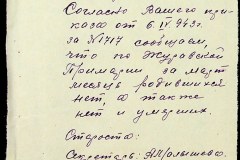 Согласно Вашего при-
каза от 6 IV 943 г.
за №1717 сообщаем,
что по Журавской
Примарии за март
месяц родившихся
нет, а также
нет и умерших.
Староста:
Секретарь: